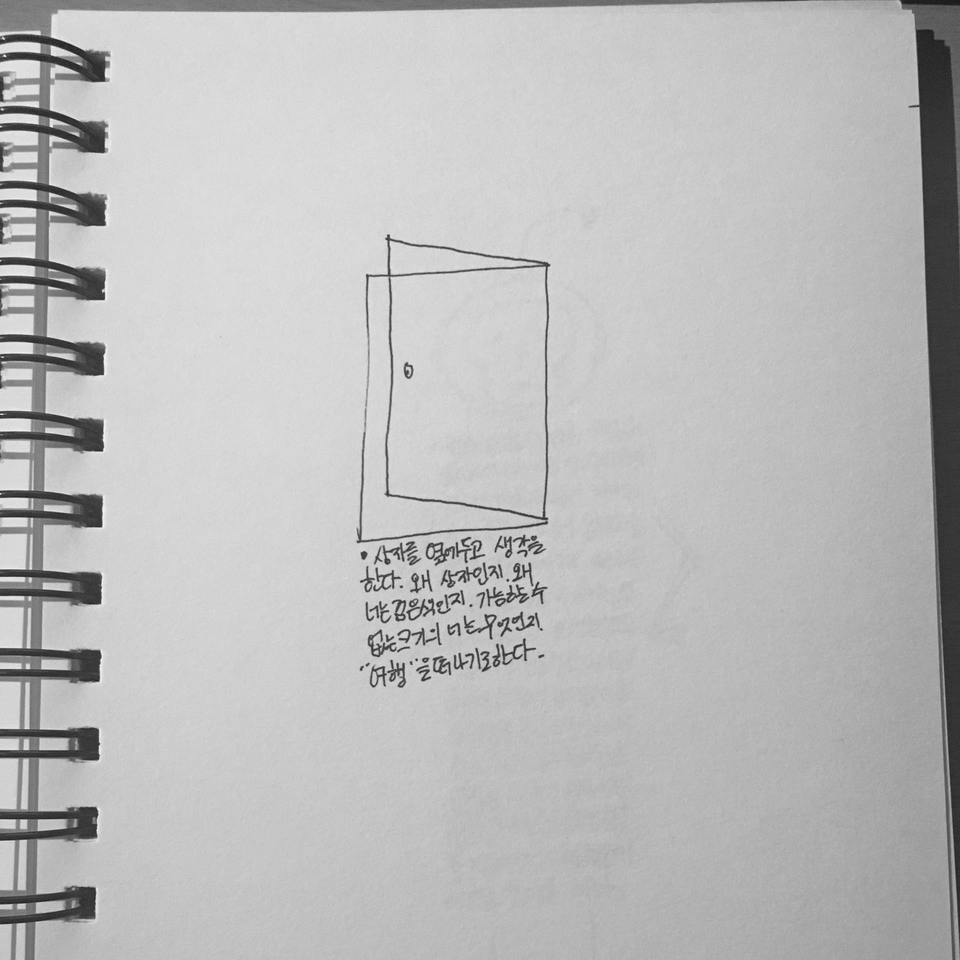 • 상자를 옆에두고 생각을
한다. 왜 상자인지. 왜
너는 검은색인지. 가늠할 수
없는 크기의 너는 무엇인지.
"여행"을 떠나기로한다.